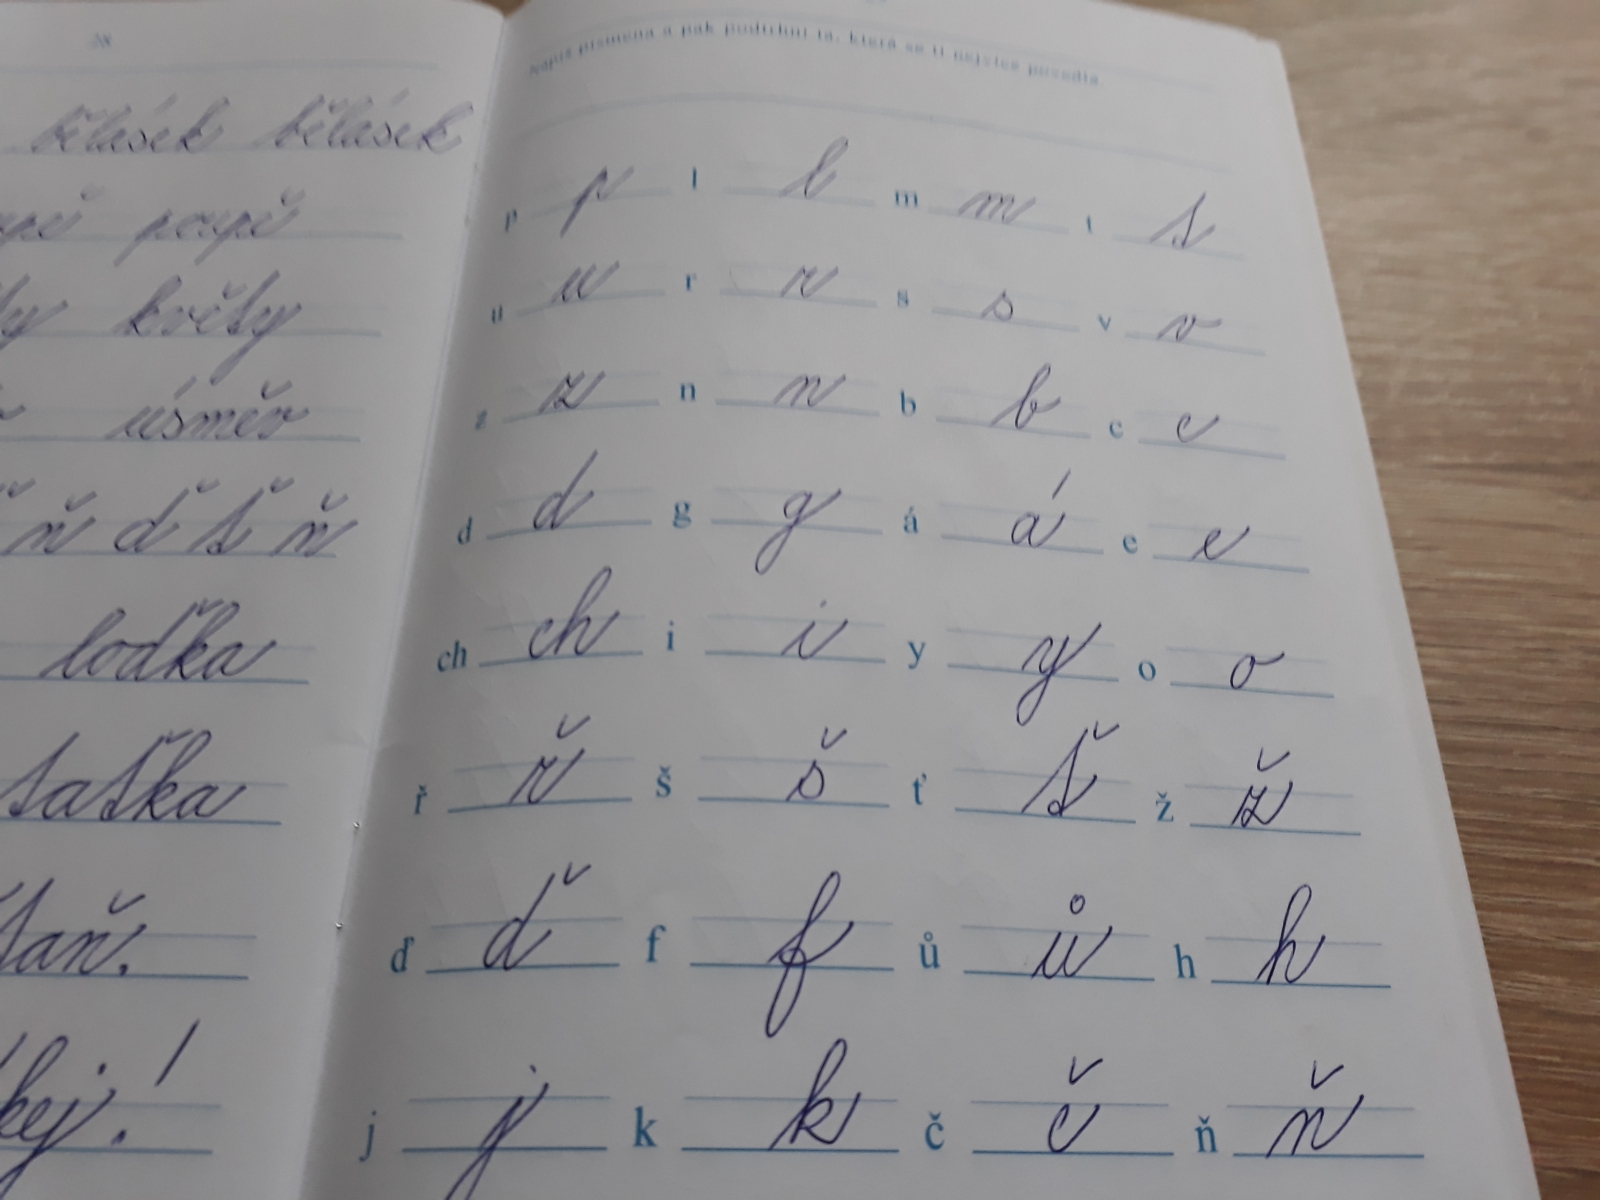 28
bělásek bělásek
poupě
květy
úsměv
ň ď ť ň
loďka
taťka
!
Napiš písmena a pak podtrhni ta, která se ti nejvíce povedla
p p l l m m t t
u u r r s s v v
z z n n b b c c
d d g g á á e e
ch ch i i y y o o
ř ř š š ť ť ž ž
ď ď f f ů ů h h
j j k k č č ň ň